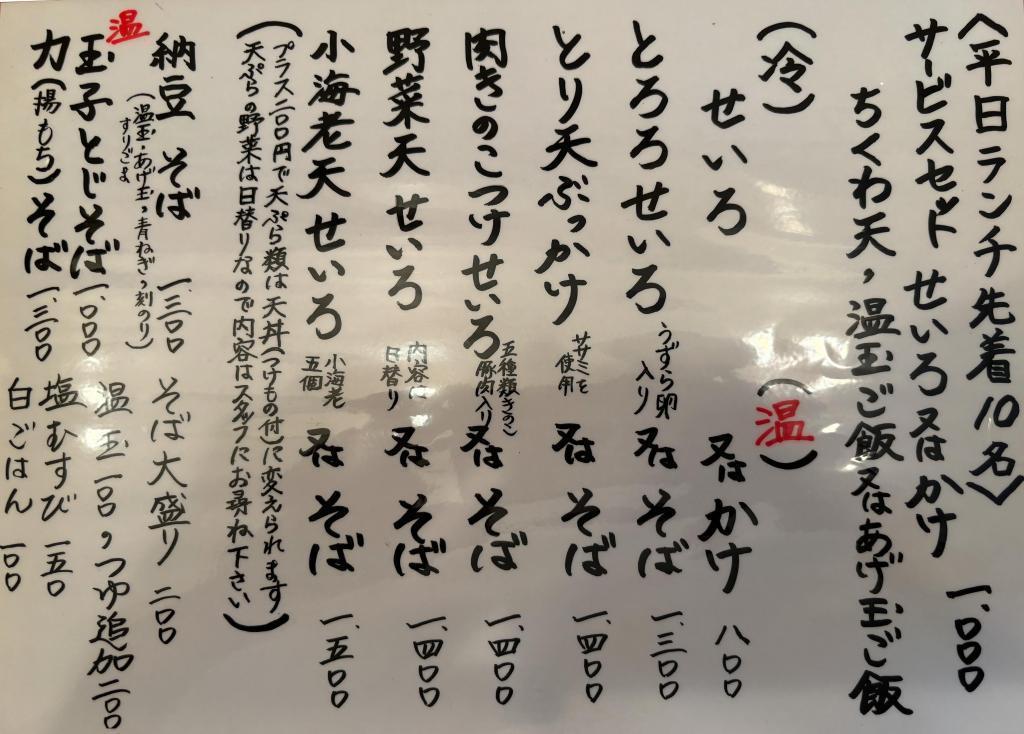 〈平日ランチ先着10名〉
サービスセット せいろ又はかけ 一、〇〇〇
ちくわ天,温玉ご飯又はあげ玉ご飯
(冷) (温)
せいろ 又は かけ 八〇〇
とろろせいろ うずら卵入り 又は そば 一、三〇〇
とり天ぶっかけ ササミを使用 又は そば 一、四〇〇
肉きのこつけせいろ 五種類きのこ 豚肉入り 又は そば 一、四〇〇
野菜天せいろ 内容は日替り 又は そば 一、四〇〇
小海老天せいろ 小海老五個 又は そば 一、五〇〇
(プラス二〇〇円で天ぷら類は天丼(つけもの付)に変えられます
天ぷらの野菜は日替りなので内容はスタッフにお尋ね下さい)
納豆そば 一、三〇〇
(温玉,あげ玉,青ねぎ,刻のり)
すりごま
温
玉子とじそば 一、〇〇〇
力(揚もち)そば 一、三〇〇
そば大盛り 二〇〇
温玉一〇〇,つゆ追加二〇〇
塩むすび 一五〇
白ごはん 一〇〇